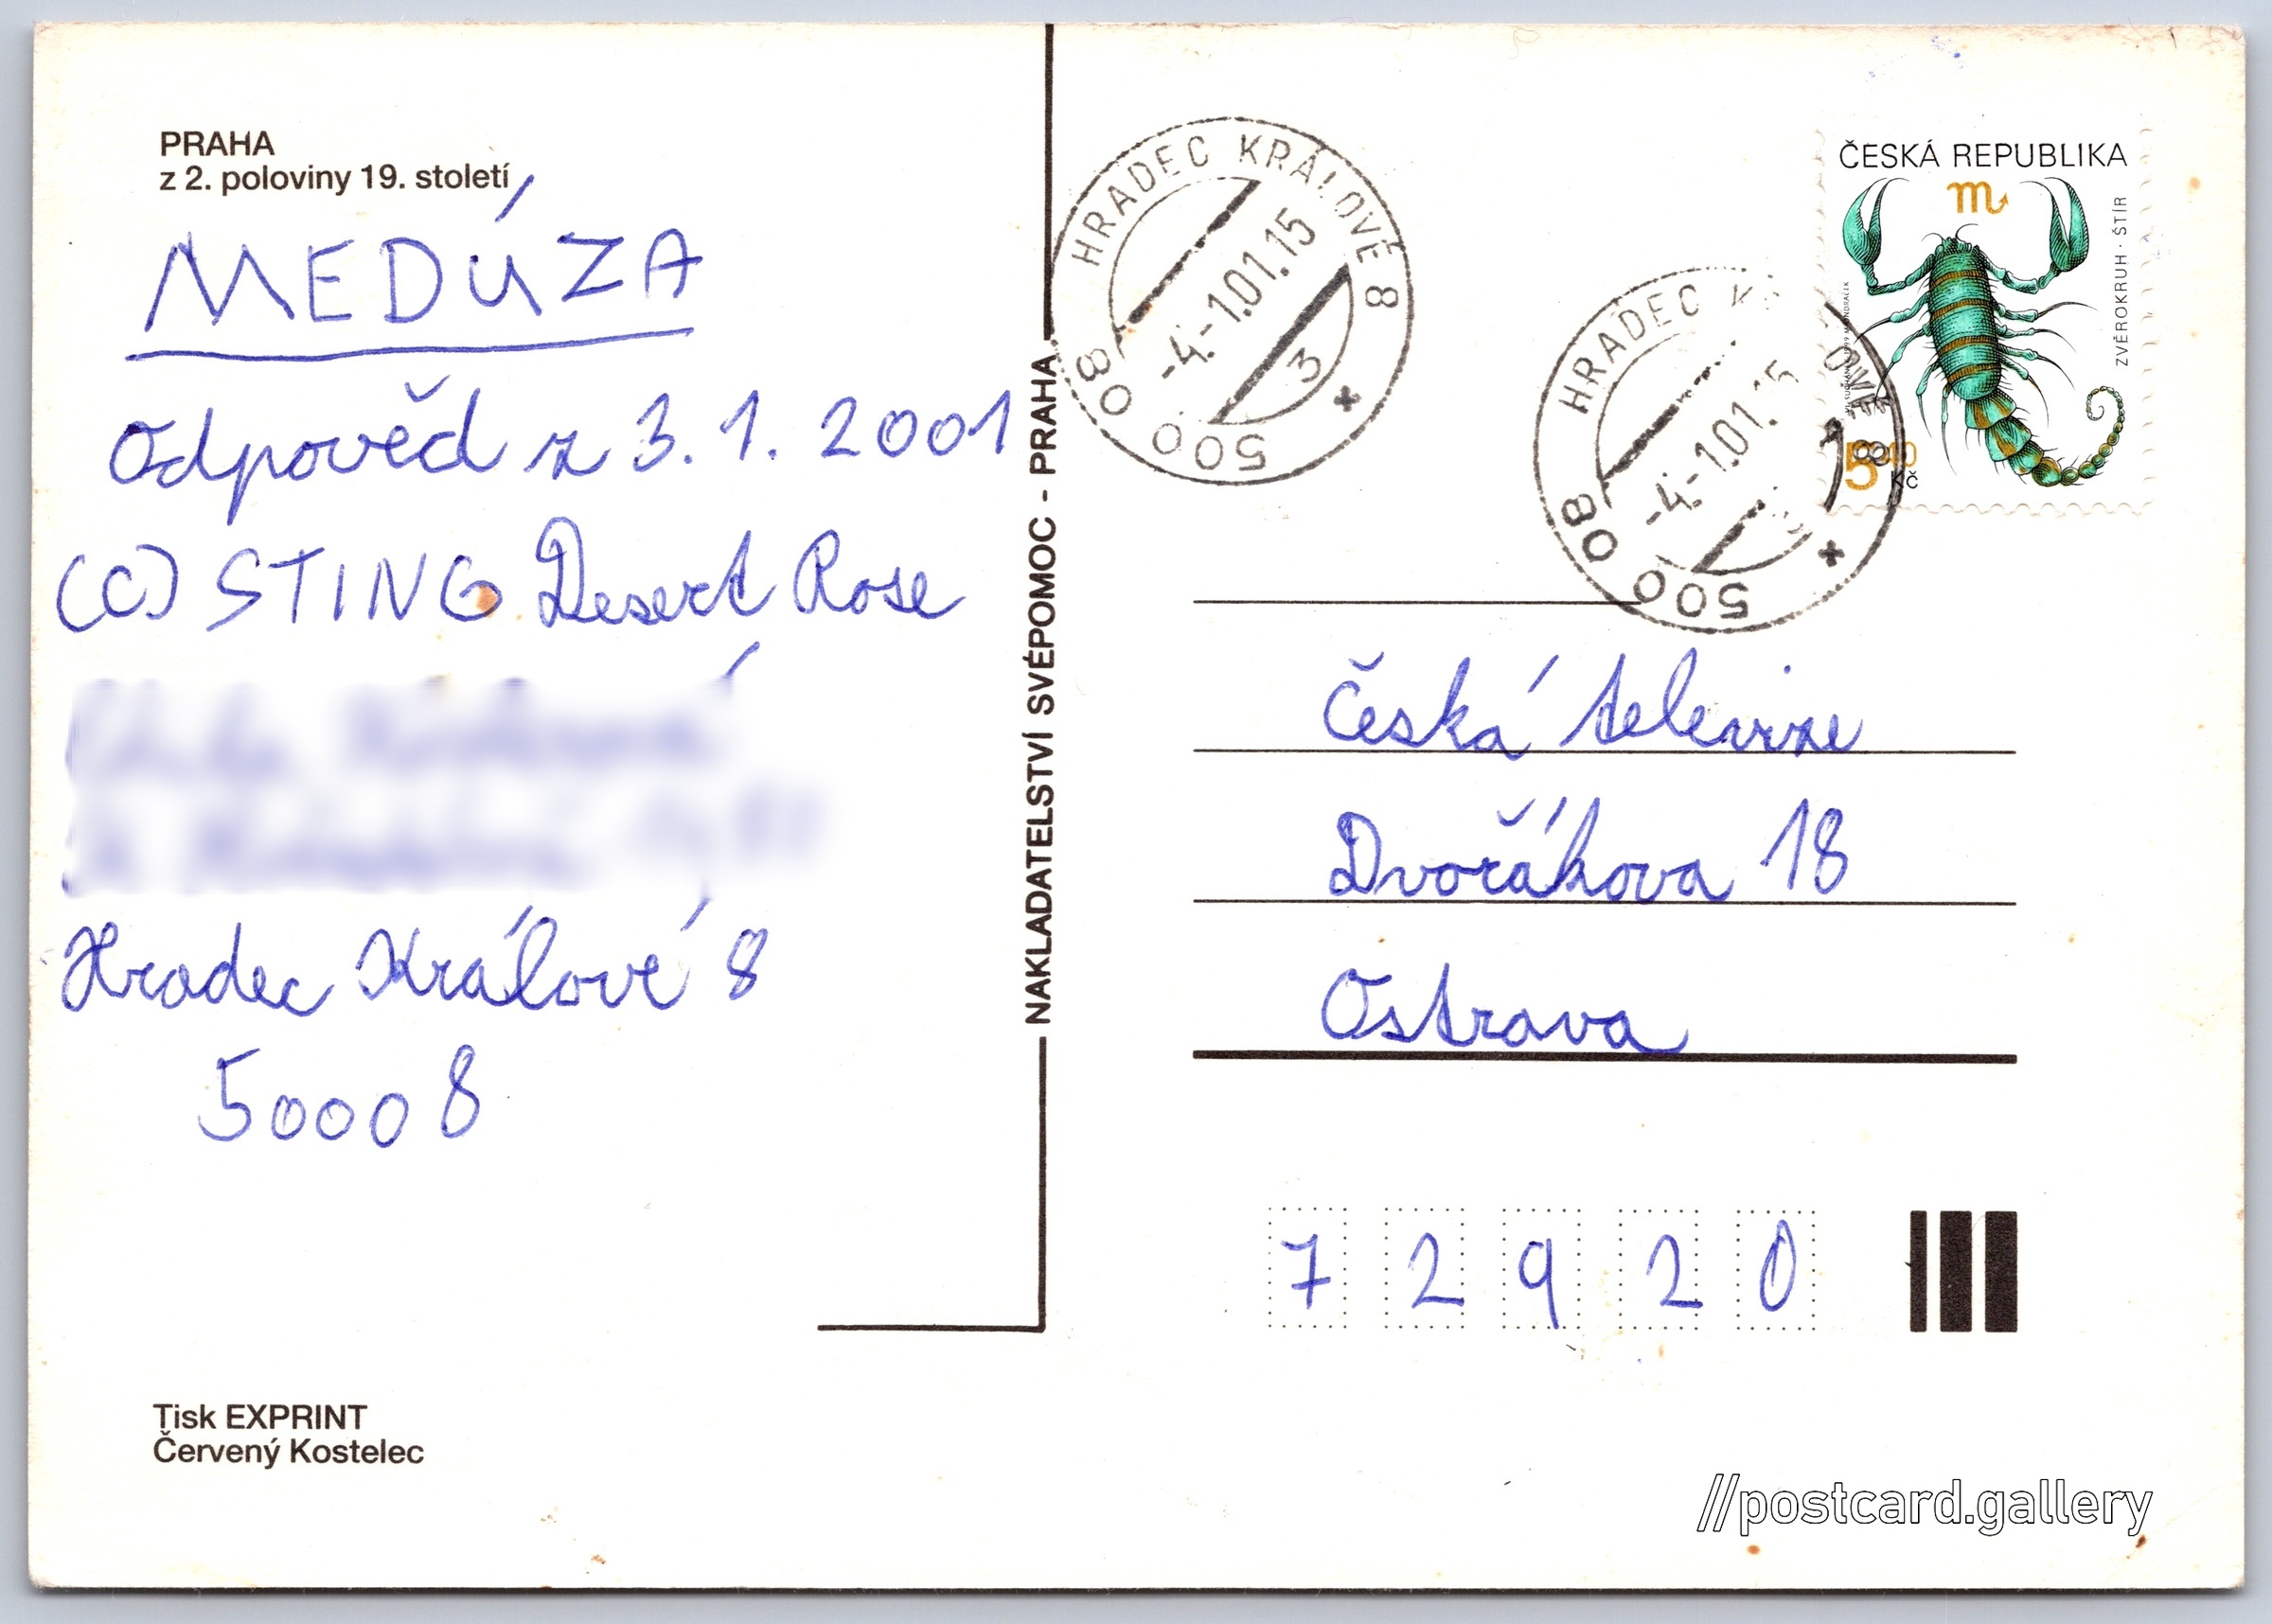 PRAHA
z 2. poloviny 19. století
MEDÚZA
odpověd z 3. 1. 2001
(C) STING Desert Rose
Hradec Králové 8
50008
Tisk EXPRINT
Červený Kostelec
NAKLADATELSTVÍ SVÉPOMOC - PRAHA
HRADEC KRÁLOVÉ 8
-4.-1.01.15
3
500 08
HRADEC
-4.-1.01.15
500 08
ČESKÁ REPUBLIKA
ZVĚROKRUH · ŠTÍR
Kč
Česká televize
Dvořákova 18
Ostrava
7 2 9 2 0
//postcard.gallery